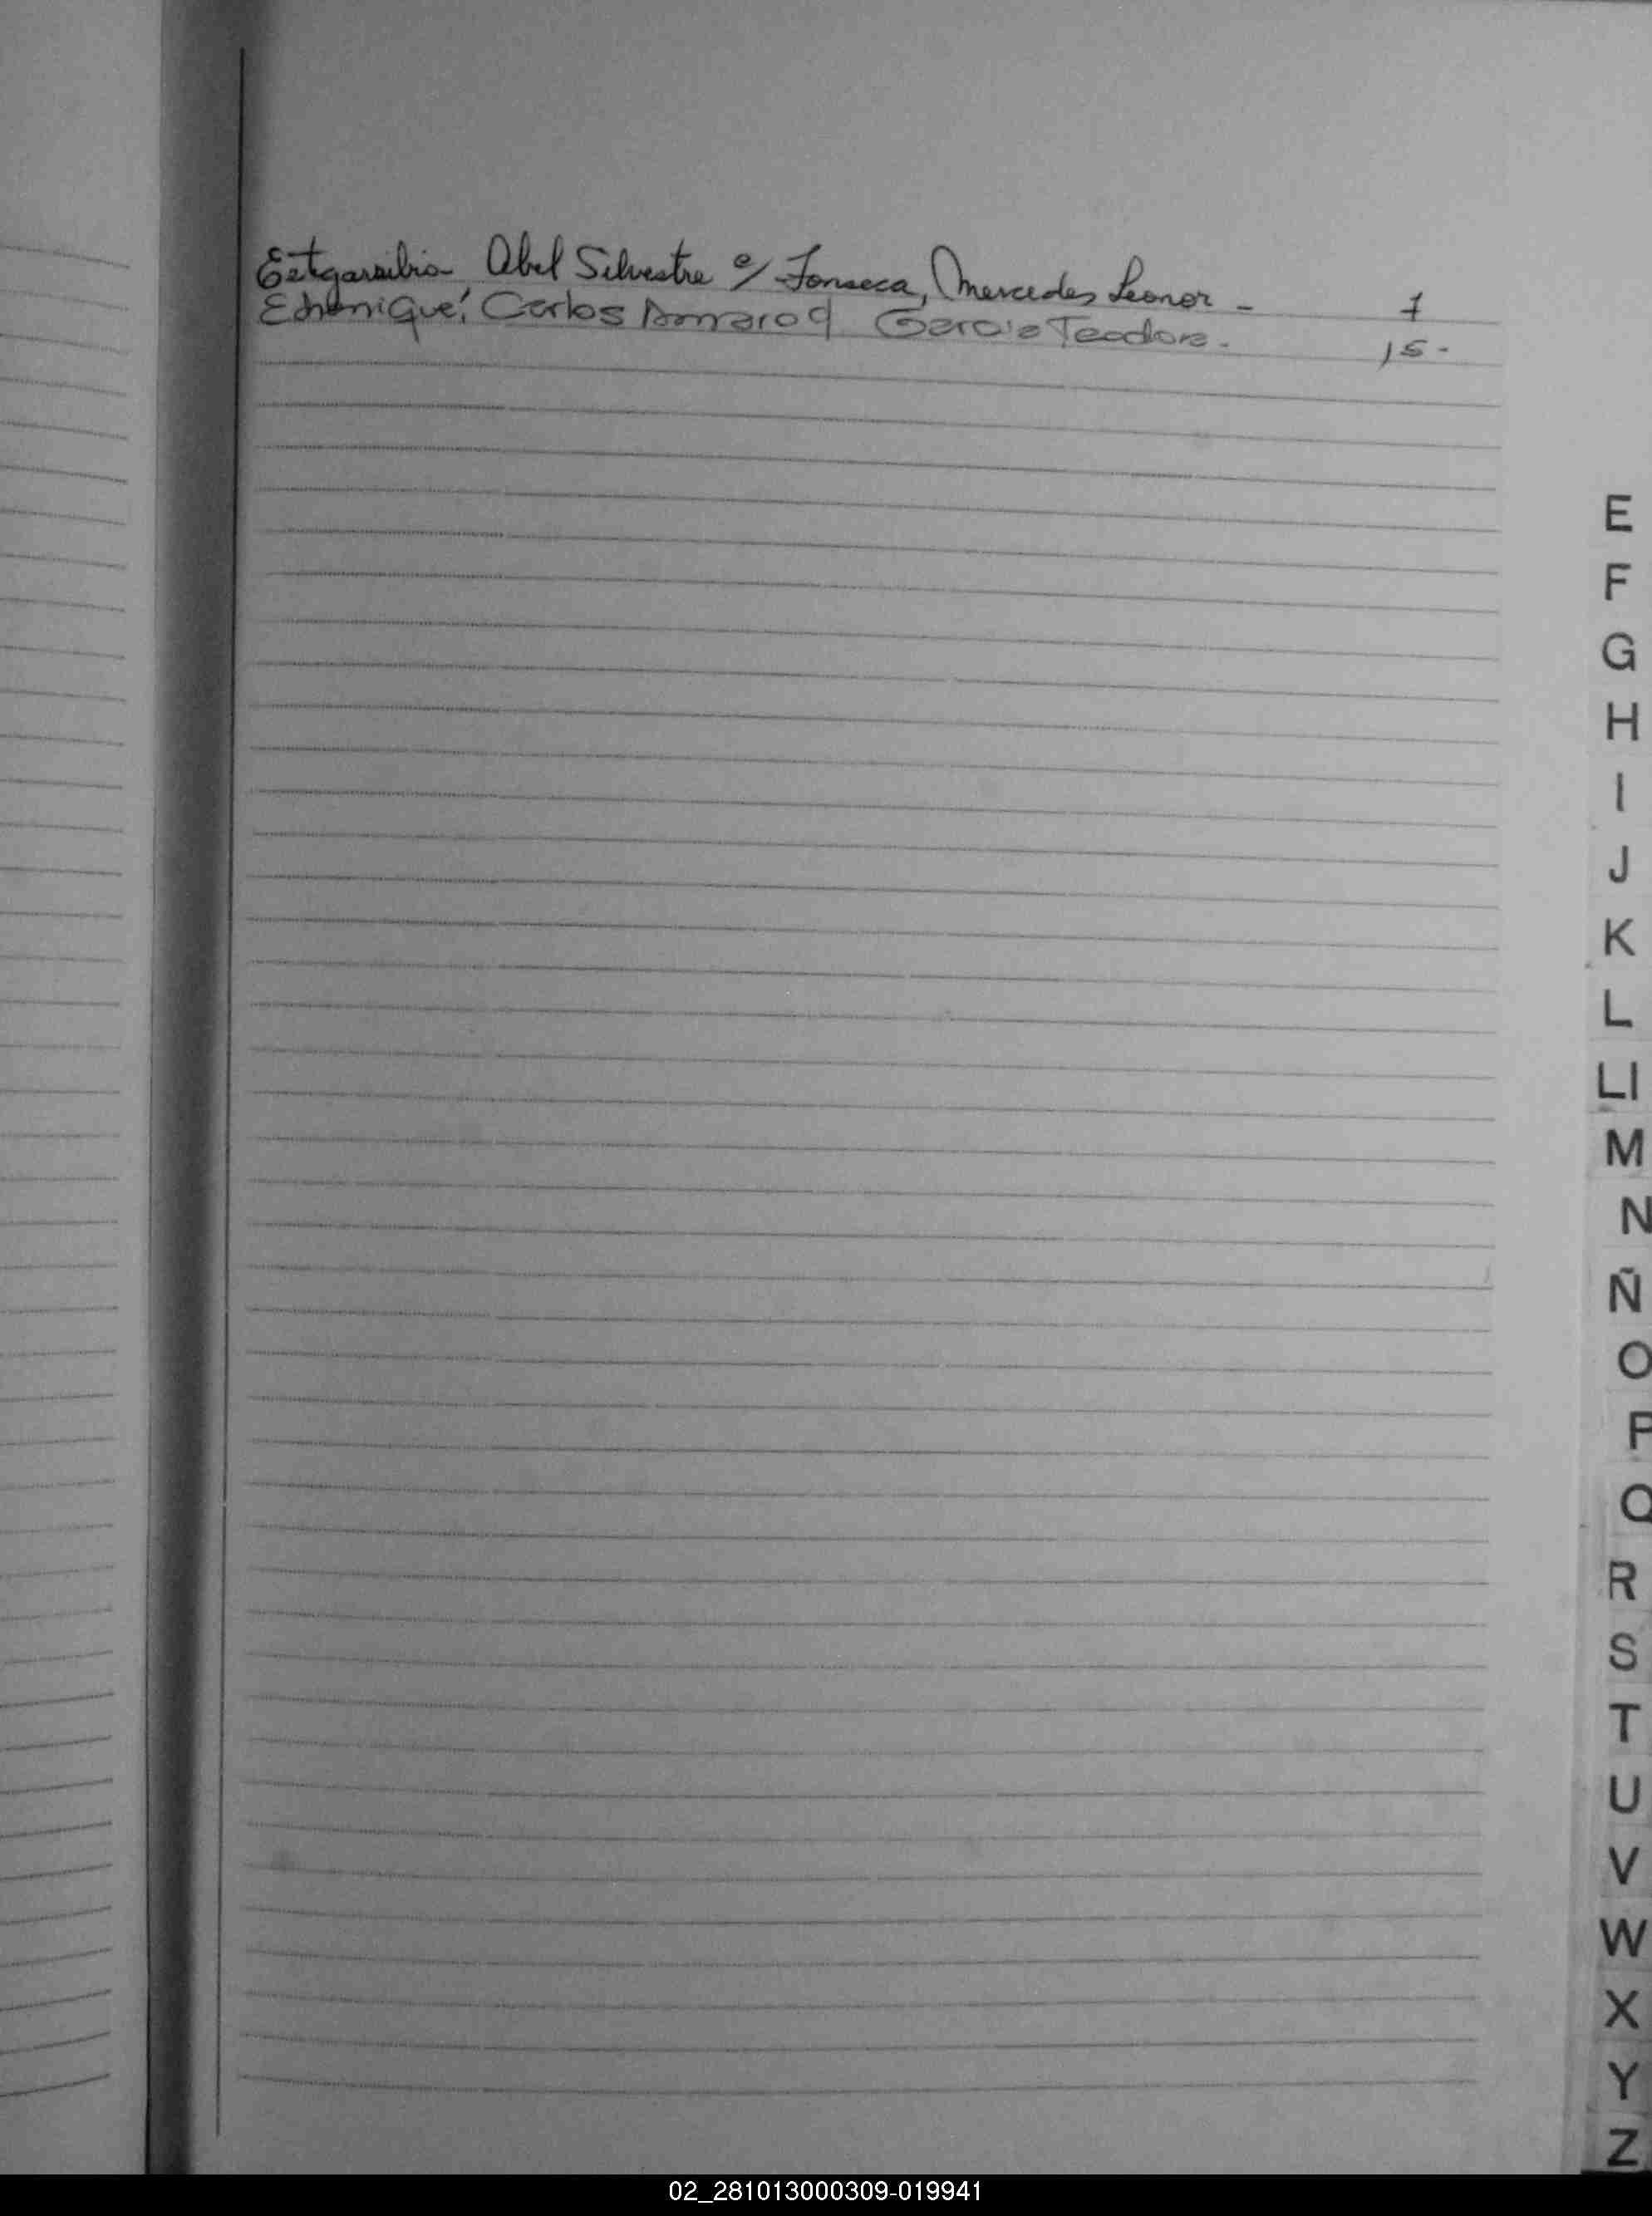 Abel Silvestre c/ Fonseca, Mercedes Leonor - 7
Echenique, Carlos Amaro c/ Garcia Teodora. 15-
E
F
G
H
I
J
K
L
Ll
M
N
Ñ
O
P
Q
R
S
T
U
V
W
X
Y
Z
02_281013000309-019941